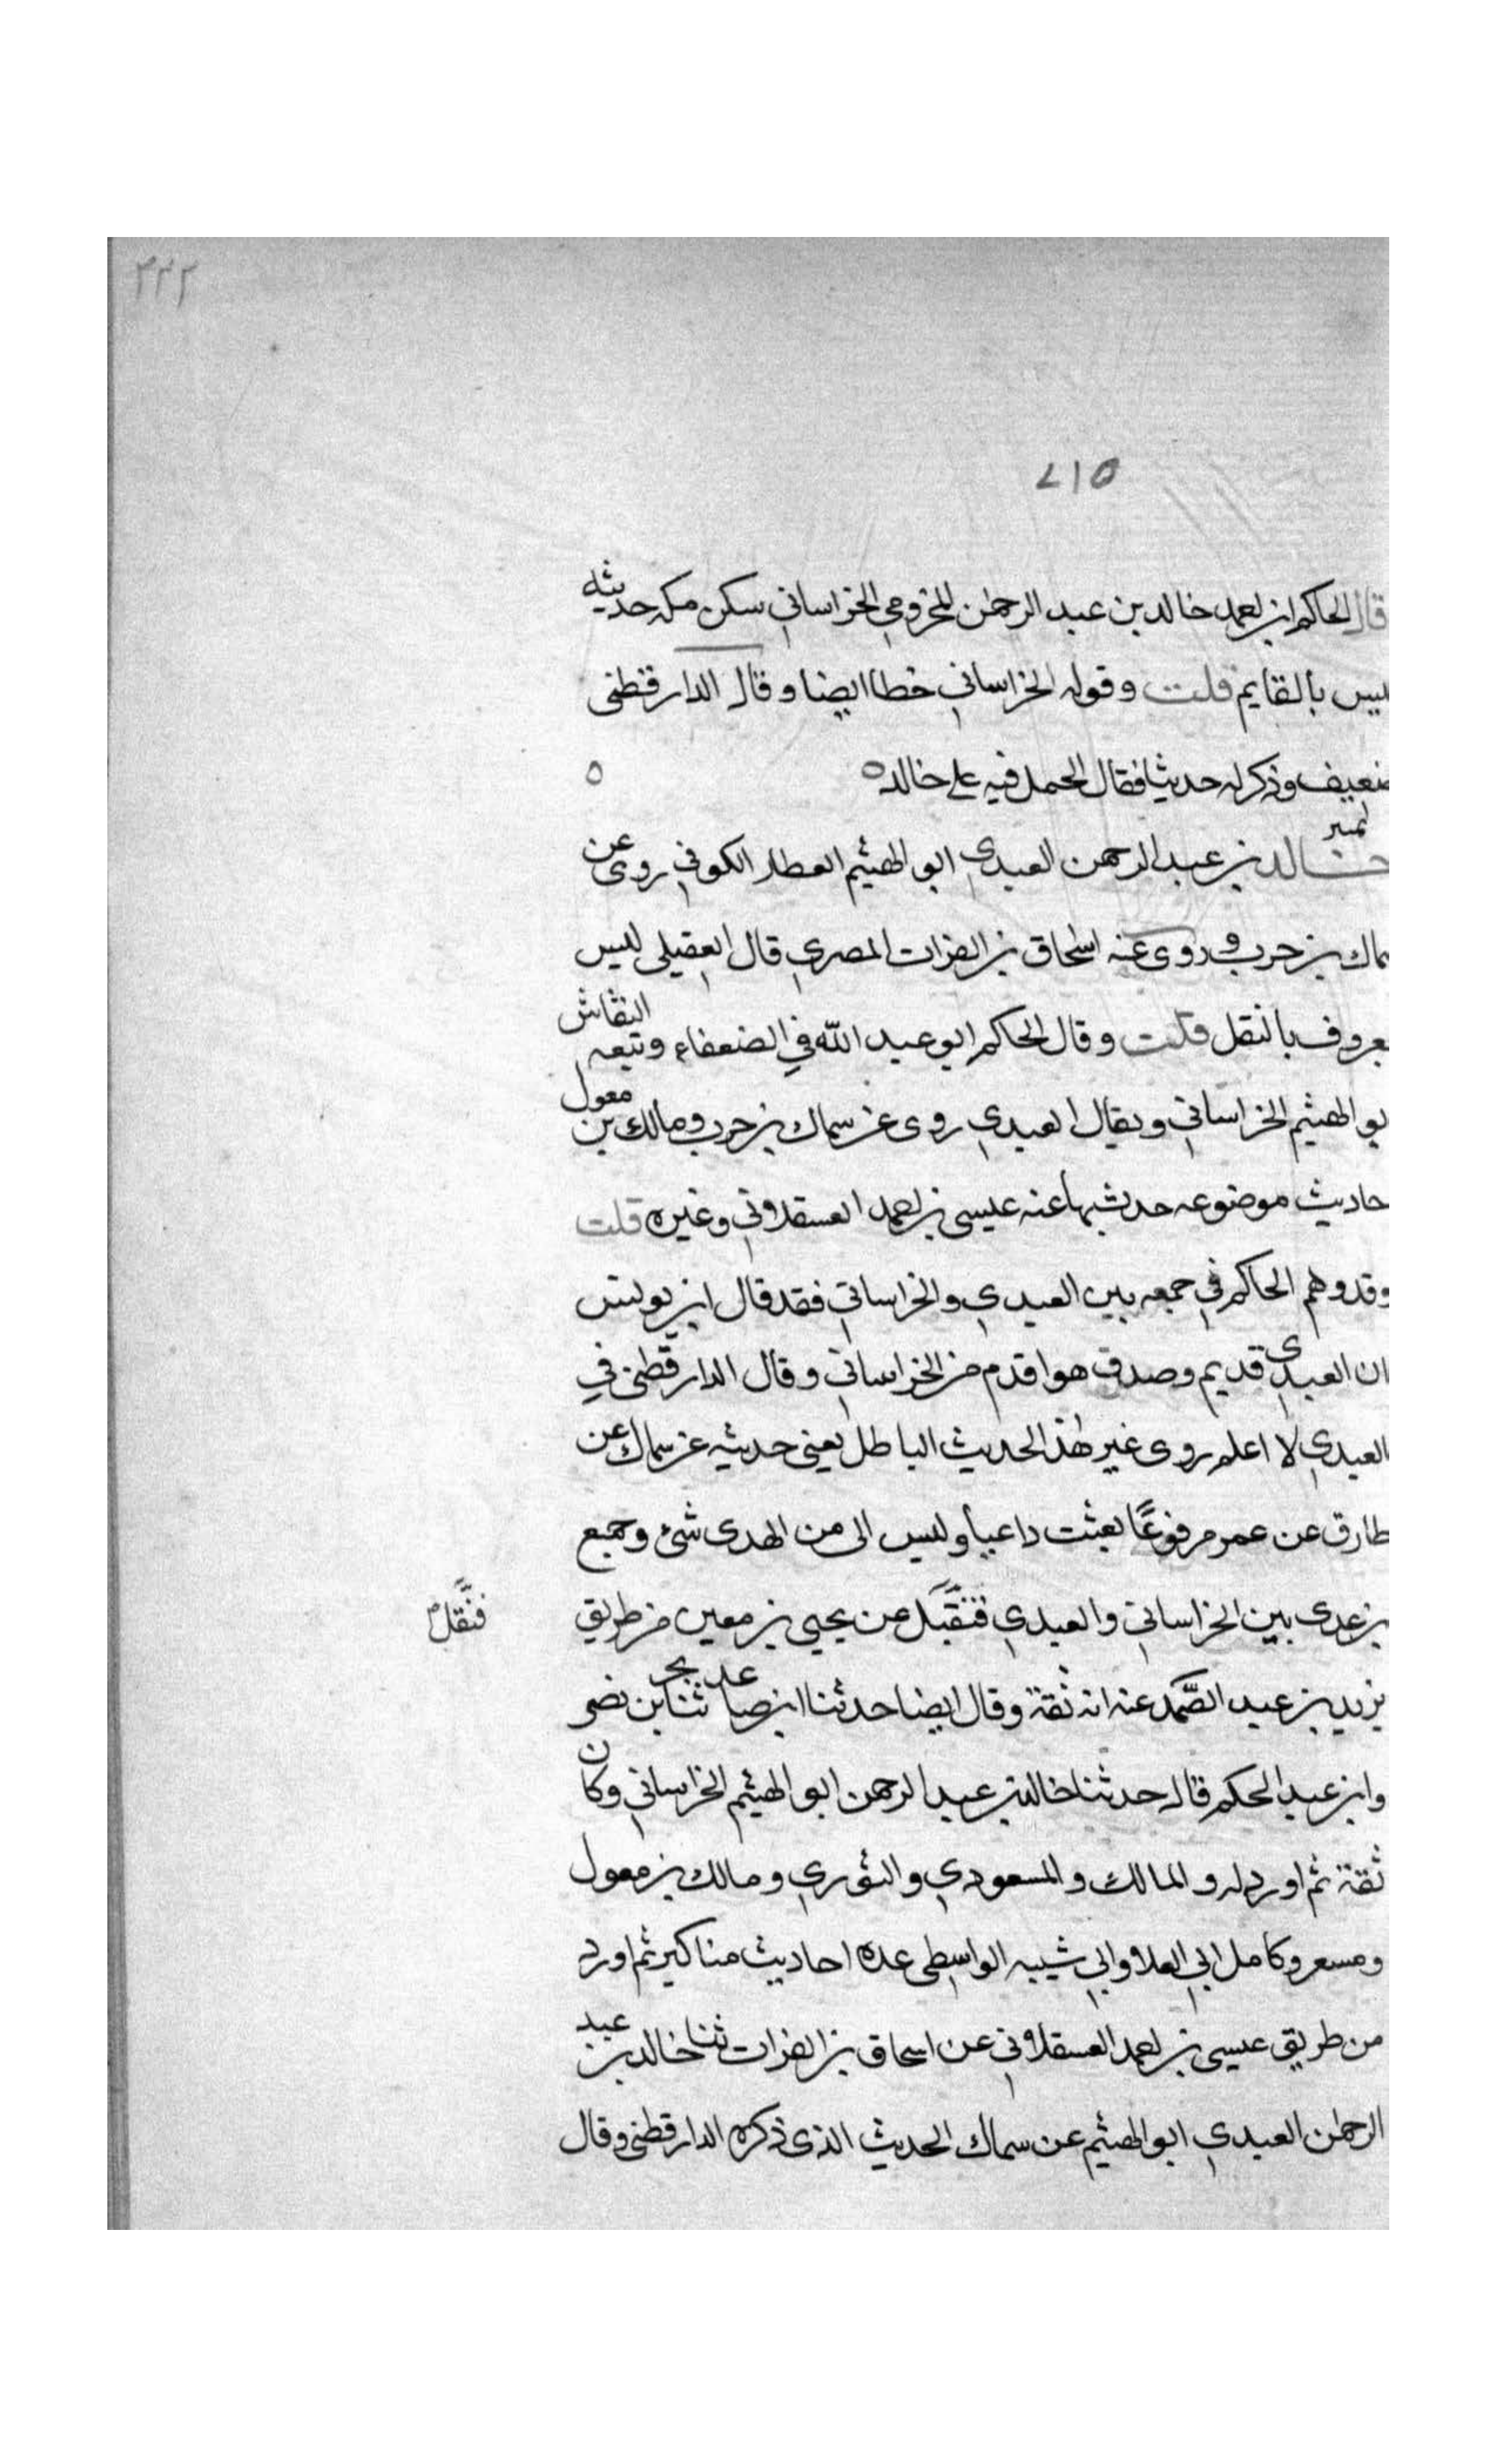 ٣٢٢
٥١٧
قال الحاكم ابو احمد خالد بن عبد الرحمن المخزومي الخراساني سكن مكه حديثه
ليس بالقايم قلت وقوله الخراساني خطا ايضا وقال الدارقطني
ضعيف وذكر له حديثا فقال الحمل فيه على خالد ٥ ٥
تمييز
خالد بن عبد الرحمن العبدي ابو الهيثم العطار الكوفي روى عن
ماك بن حرب و روى عنه اسحاق بن الفرات المصري قال العقيلي ليس
عروف بالنقل قلت وقال الحاكم ابو عبد الله في الضعفاء وتبعه النقاش
بو الهيثم الخراساني ويقال العبدي روى عن سماك بن حرب ومالك بن معول
حاديث موضوعه حدث بها عنه عيسى بن احمد العسقلاني وغيره قلت
وقد وهم الحاكم في جمعه بين العبدي والخراساني فقد قال ابن يونس
ان العبدي قديم وصدق هو اقدم من الخراساني وقال الدارقطني في
العبدي لا اعلم روى غير هذا الحديث الباطل يعني حديثه عن سماك عن
طارق عن عمر مرفوعًا بعثت داعيا وليس الى من الهدى شئ وجمع
بن عدى بين الخراساني والعبدي فتقبل عن يحيى بن معين من طريق
فنقل
يزيد بن عبد الصَّمد عنه انه ثقة وقال ايضا حدثنا ابن صاعد ثنا بحر بن نصر
وابن عبد الحكم قال حدثنا خالد بن عبد الرحمن ابو الهيثم الخراساني وكان
ثقة ثم اورد له و المالك والمسعودي والثوري ومالك بن معول
ومسعر وكامل ابي العلا وابي شيبه الواسطى عدة احاديث مناكير ثم اورد
من طريق عيسى بن احمد العسقلاني عن اسحاق بن الفرات ثنا خالد بن عبد
الرحمن العبدي ابو الهيثم عن سماك الحديث الذى ذكره الدارقطني وقال